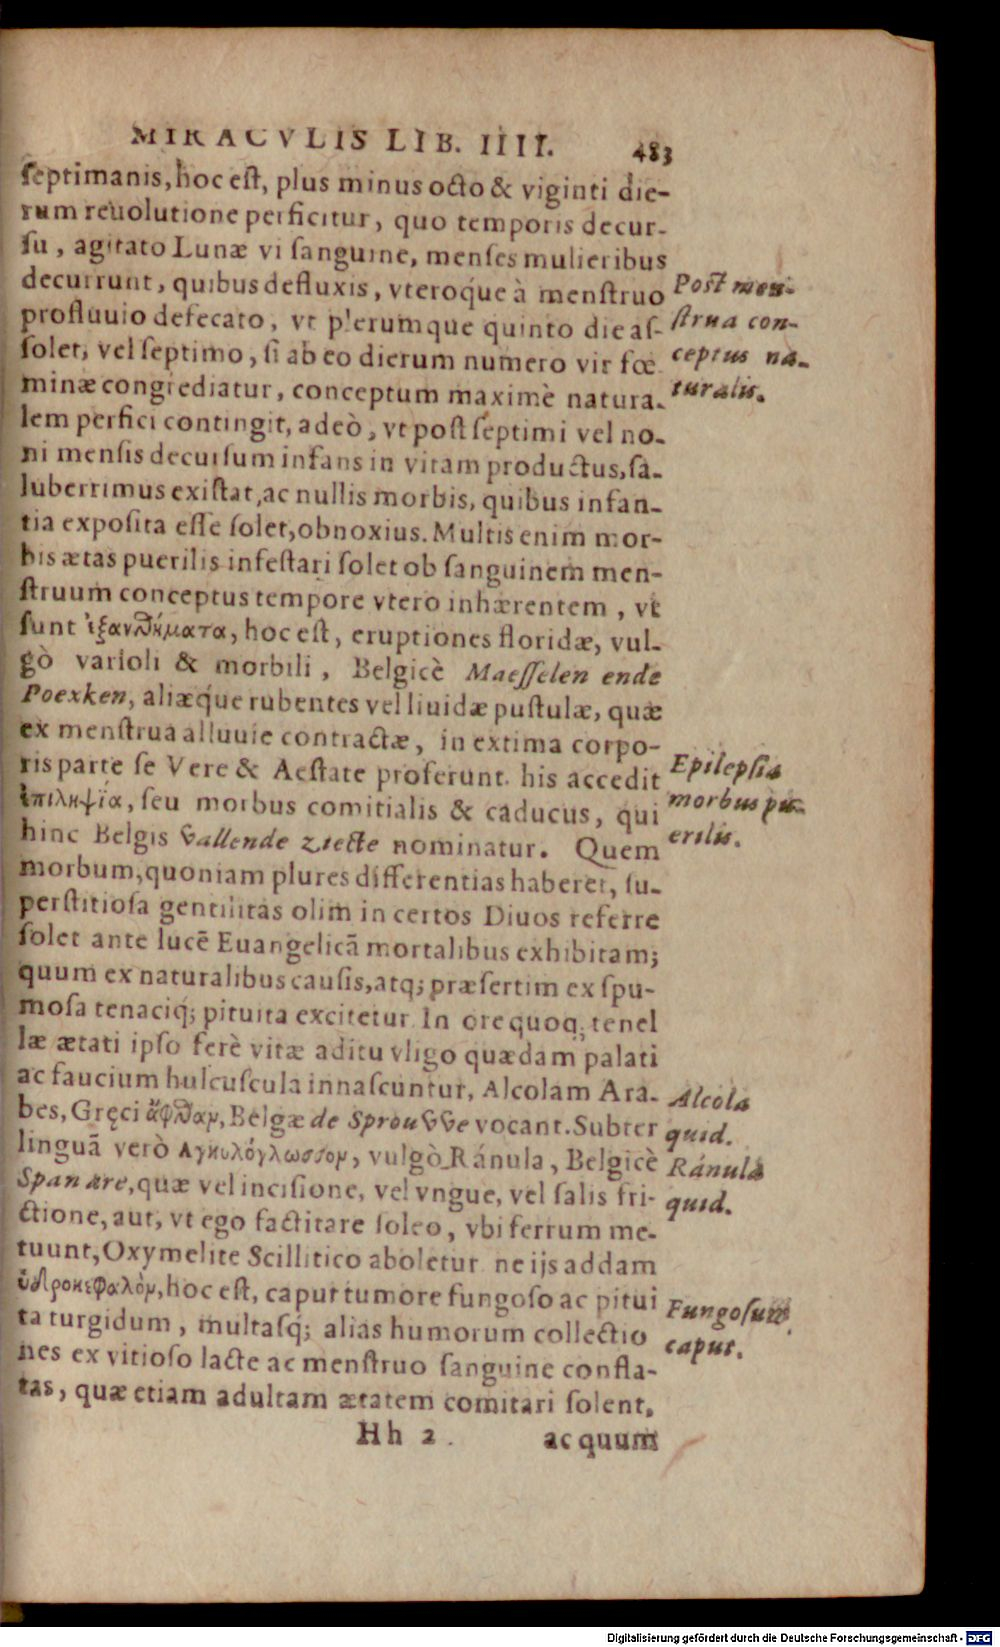 MIRACVLIS LIB. IIII. 483
septimanis, hoc est, plus minus octo & viginti die-
rum reuolutione perficitur, quo temporis decur-
su, agitato Lunæ vi sanguine, menses mulieribus
decurrunt, quibus defluxis, vteroque à menstruo
profluuio defecato, vt plerumque quinto die as-
solet, vel septimo, si ab eo dierum numero vir fœ
minæ congrediatur, conceptum maximè natura-
lem perfici contingit, adeò, vt post septimi vel no-
ni mensis decursum infans in vitam productus, sa-
luberrimus existat, ac nullis morbis, quibus infan-
tia exposita esse solet, obnoxius. Multis enim mor-
bis ætas puerilis infestari solet ob sanguinem men-
struum conceptus tempore vtero inhærentem, vt
sunt ἐξανθήματα, hoc est, eruptiones floridæ, vul-
gò varioli & morbili, Belgicè Maesselen ende
Poexken, aliæque rubentes vel liuidæ pustulæ, quæ
ex menstrua alluuie contractæ, in extima corpo-
ris parte se Vere & Aestate proferunt. his accedit
ἐπιληψία, seu morbus comitialis & caducus, qui
hinc Belgis vallende ziecte nominatur. Quem
morbum, quoniam plures differentias haberet, su-
perstitiosa gentilitas olim in certos Diuos referre
solet ante lucē Euangelicā mortalibus exhibitam;
quum ex naturalibus causis, atq; præsertim ex spu-
mosa tenaciq; pituita excitetur. In ore quoq; tenel
læ ætati ipso ferè vitæ aditu vligo quædam palati
ac faucium hulcuscula innascuntur, Alcolam Ara-
bes, Gręci ἄφθαμ, Belgæ de Sprouvve vocant. Subter
linguā verò Αγκυλόγλωσσομ, vulgò Ránula, Belgicè
Span are, quæ vel incisione, vel vngue, vel salis fri-
ctione, aut, vt ego factitare soleo, vbi ferrum me-
tuunt, Oxymelite Scillitico aboletur. ne ijs addam
ὑδροκεφαλὸμ, hoc est, caput tumore fungoso ac pitui
ta turgidum, multasq; alias humorum collectio
nes ex vitioso lacte ac menstruo sanguine confla-
tas, quæ etiam adultam ætatem comitari solent,
Hh 2. ac quum
Post men-
strua con-
ceptus na-
turalis.
Epilepsia
morbus pu-
erilis.
Alcola
quid.
Ránula
quid.
Fungosum
caput.
Digitalisierung gefördert durch die Deutsche Forschungsgemeinschaft - DFG